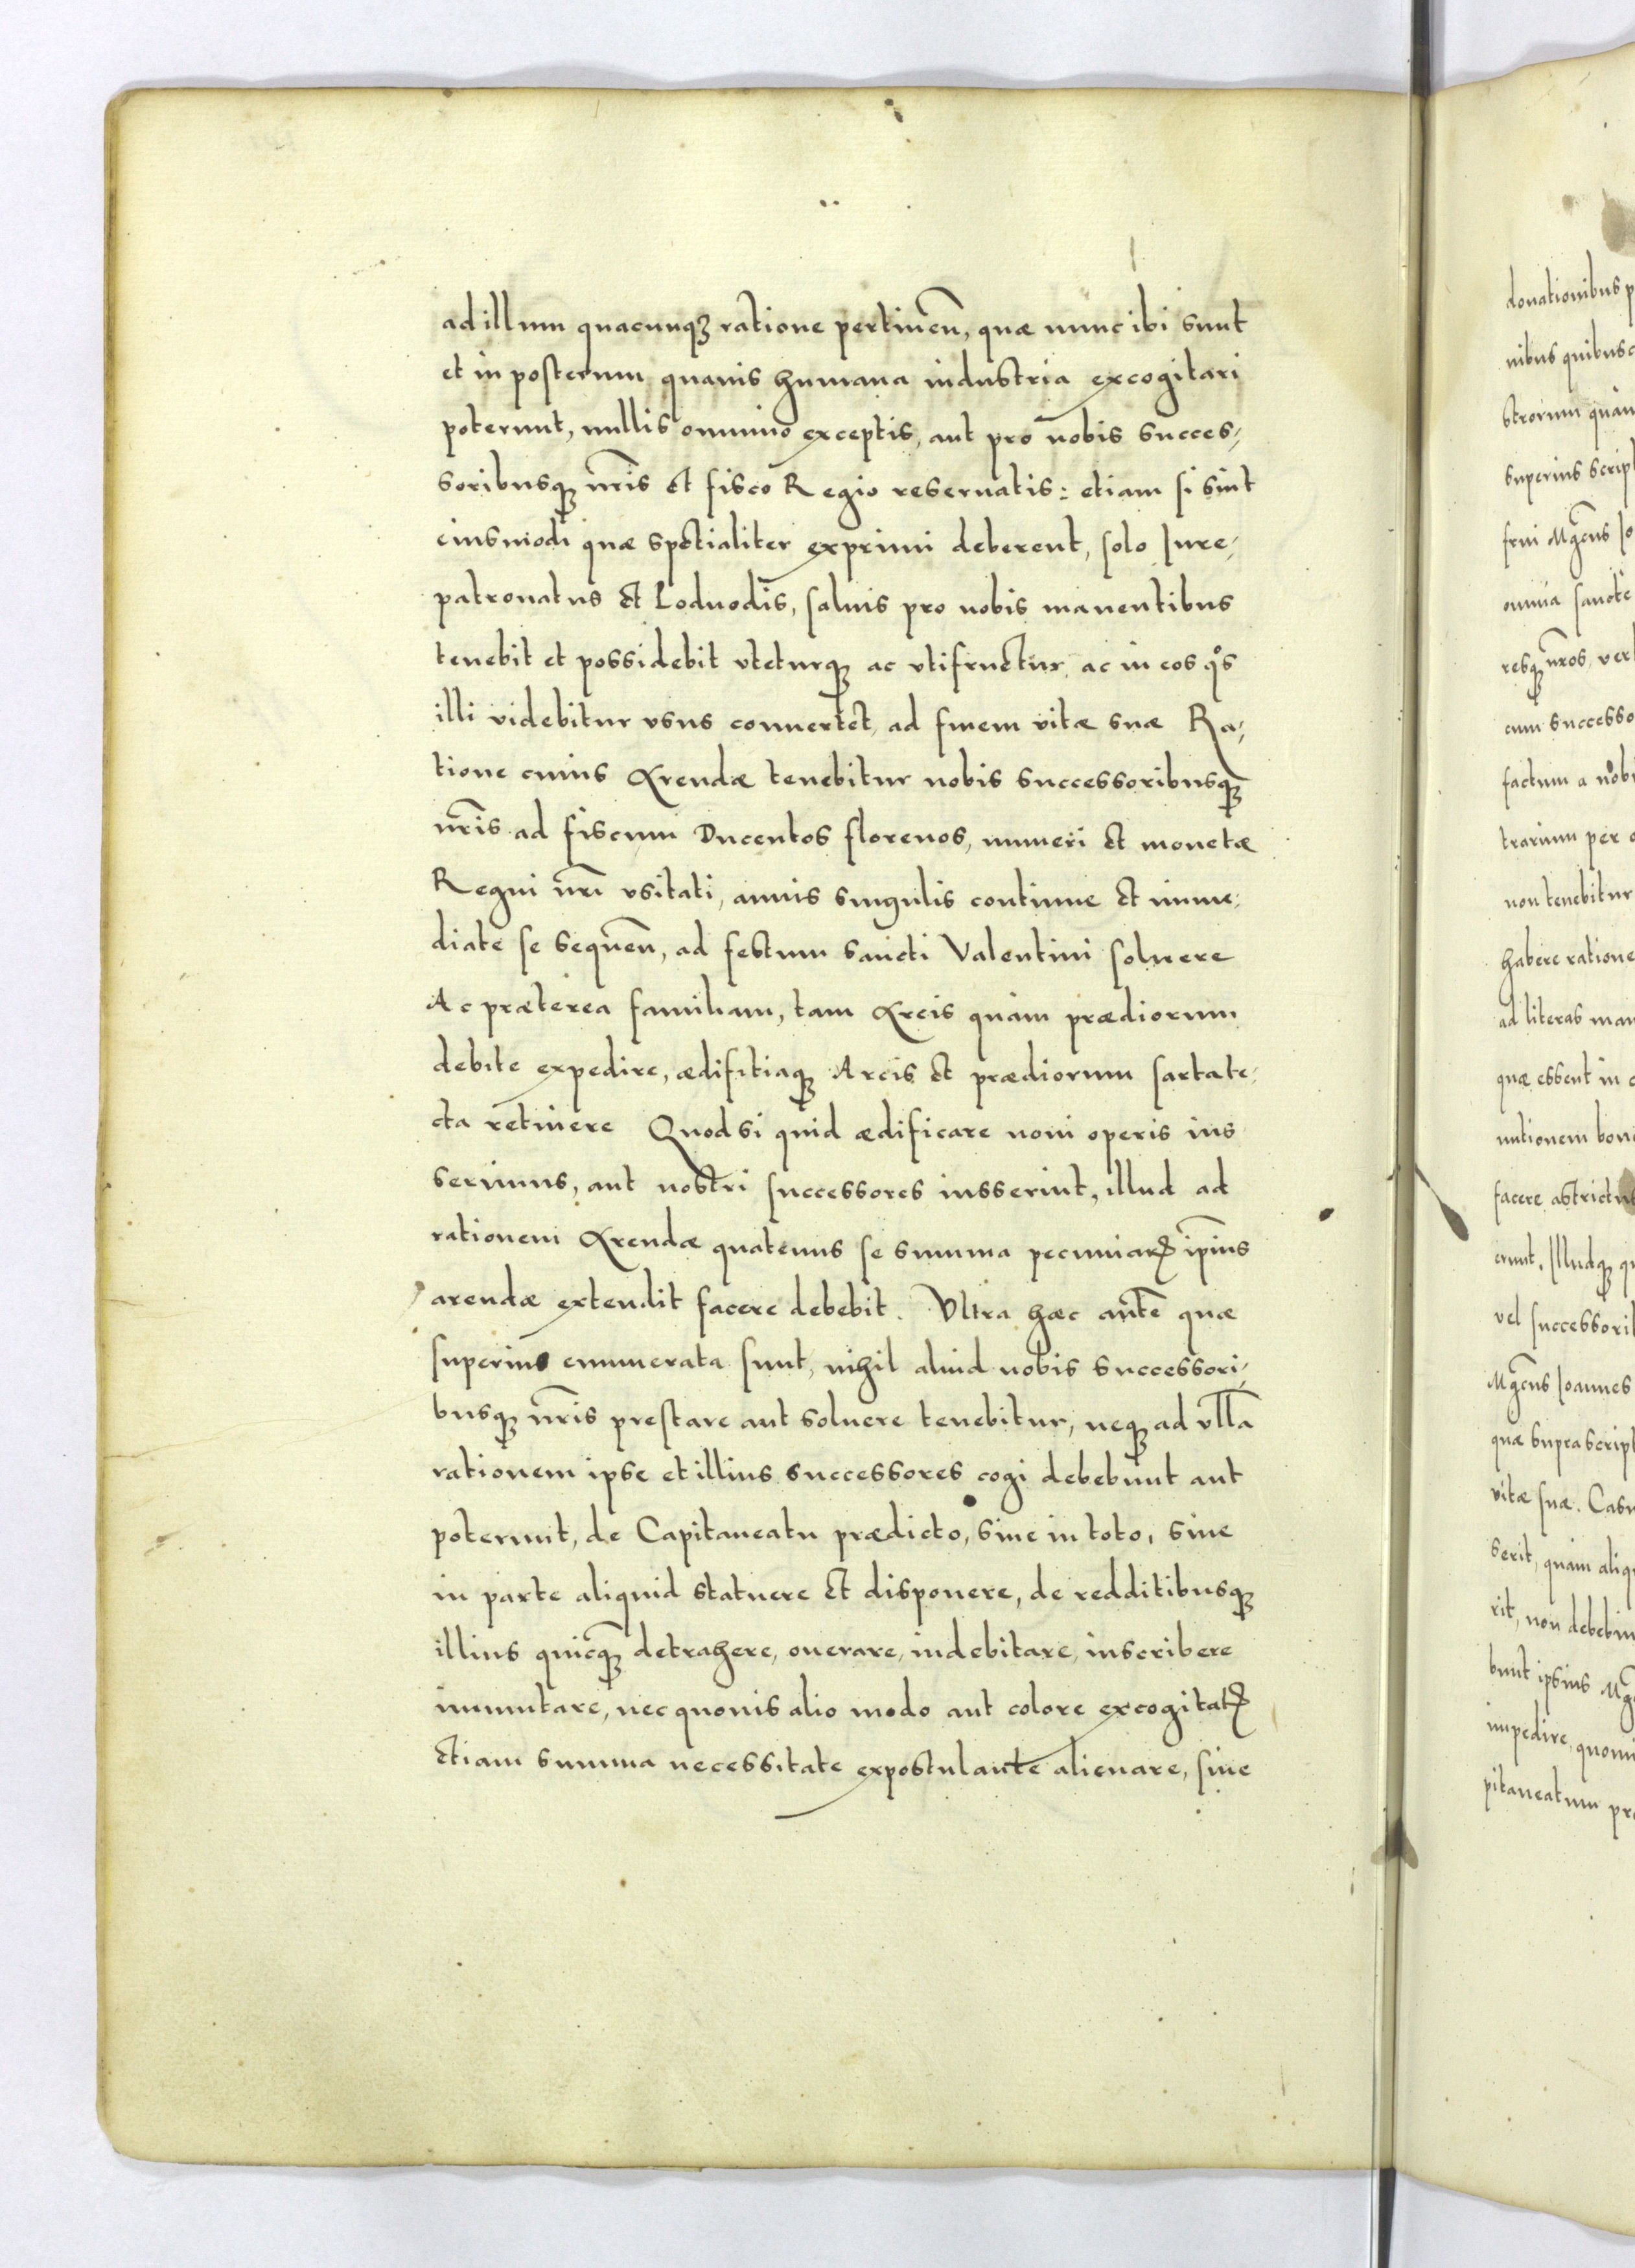 ad illum quacunqꝫ ratione pertineñ, quæ nunc ibi sunt
et in posterum quauis humana industria excogitari
poterunt, nullis omnino exceptis, aut pro nobis succes-
soribusqꝫ nr̃is et fisco Regio reseruatis: etiam si sint
eiusmodi quæ spetialiter exprimi deberent, solo Iure-
patronatus et Loduodis, saluis pro nobis manentibus
tenebit et possidebit vteturqꝫ ac vtifructur, ac in eos qͦs
illi videbitur vsus conuertet, ad finem vitæ suæ Ra-
tione cuius Arendæ tenebitur nobis successoribusqꝫ
nr̃is ad fiscum Ducentos florenos, numeri et monetæ
Regni nr̃i vsitati, annis singulis continue et imme-
diate se sequeñ, ad festum Sancti Valentini soluere
Ac præterea familiam, tam Arcis quàm prædiorum
debite expedire, ædifitiaqꝫ Arcis et prædiorum sartate-
cta retinere Quod si quid ædificare noui operis ius
serimus, aut nostri successores iusserint, illud ad
rationem Arendæ quatenus se summa pecuniaꝝ ip̃ius
arendæ extendit facere debebit. Vltra hæc aut̃e quæ
superius enumerata sunt, nihil aliud nobis successori-
busqꝫ nr̃is prestare aut soluere tenebitur, neqꝫ ad vllã
rationem ipse et illius successores cogi debebunt aut
poterunt, de Capitaneatu prædicto, siue in toto, siue
in parte aliquid statuere et disponere, de redditibusqꝫ
illius quicq̃ꝫ detrahere, onerare, indebitare, inscribere
immutare, nec quouis alio modo aut colore excogitatꝫ
etiam summa necessitate expostulante alienare, siue
donationibus p
nibus quibusc
strorum quàm
superius script
frui Mg̃cus Io
omnia sancte
resqꝫ nr̃os, ver
cum successo
factum a nobi
trarium per
non tenebitur
habere ratione
ad literas man
quæ essent in
nutionem bon
facere abstrictu
erunt. Illudqꝫ q
vel successorib
Mg̃cus Ioannes
quæ suprascript
vitæ suæ. Casu
serit, quàm aliq
rit, non debebim
bunt ipsius Mg̃
impedire, quomi
pitaneatum pr